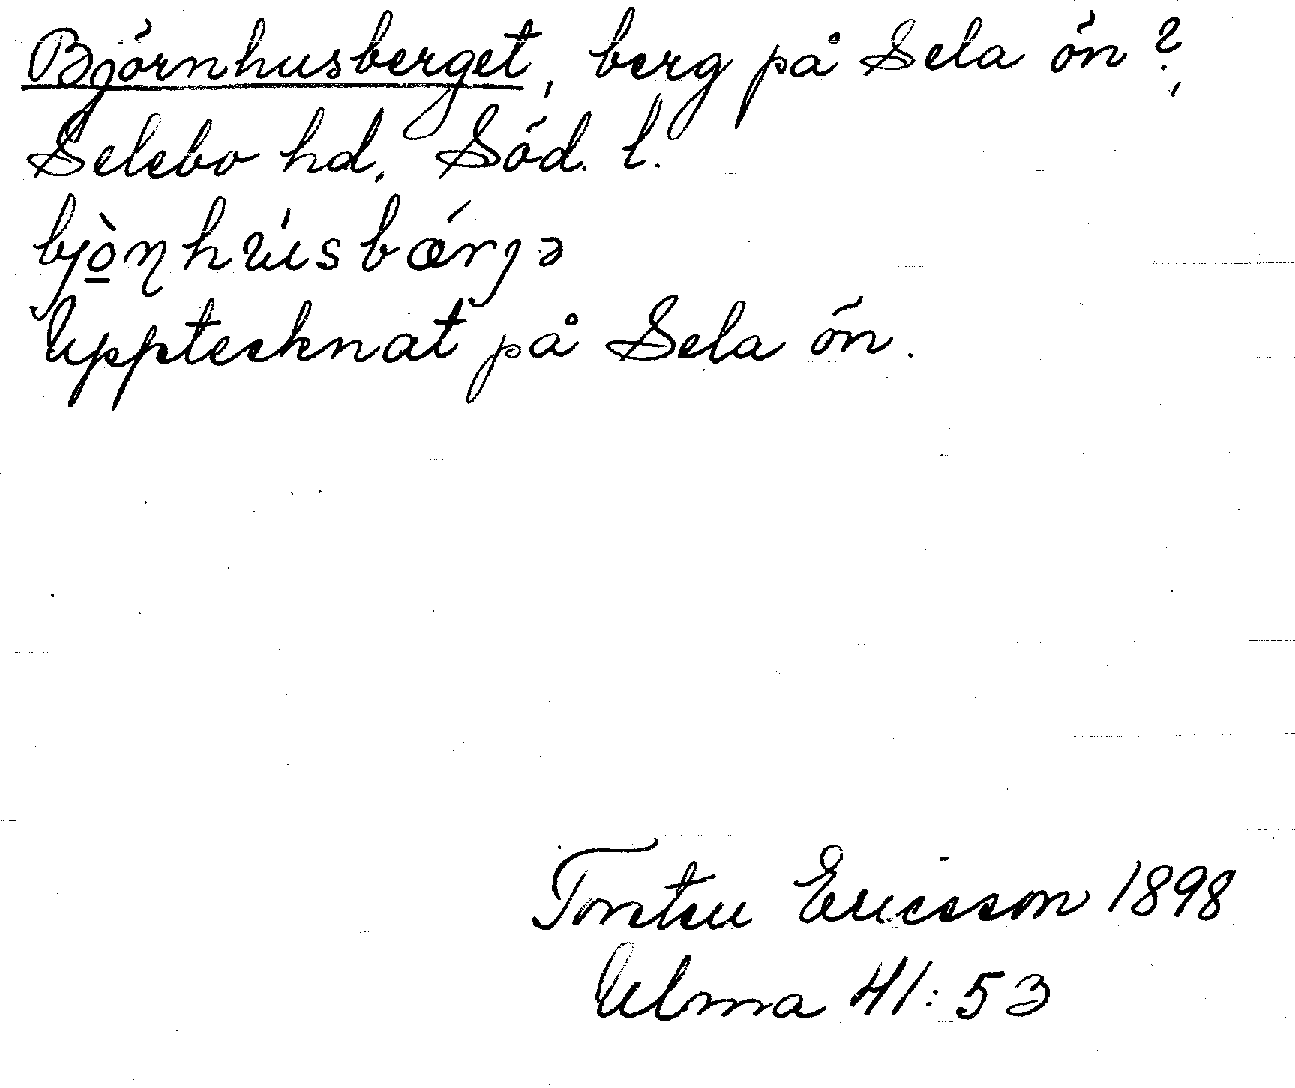 Björnhusberget, berg på Sela ön?,
Selebo hd, Söd. l.
bjò̲ŋhu̍sbǽrjə
Upptecknat på Sela ön.
Torsten Ericsson 1898
Ulma 41:53